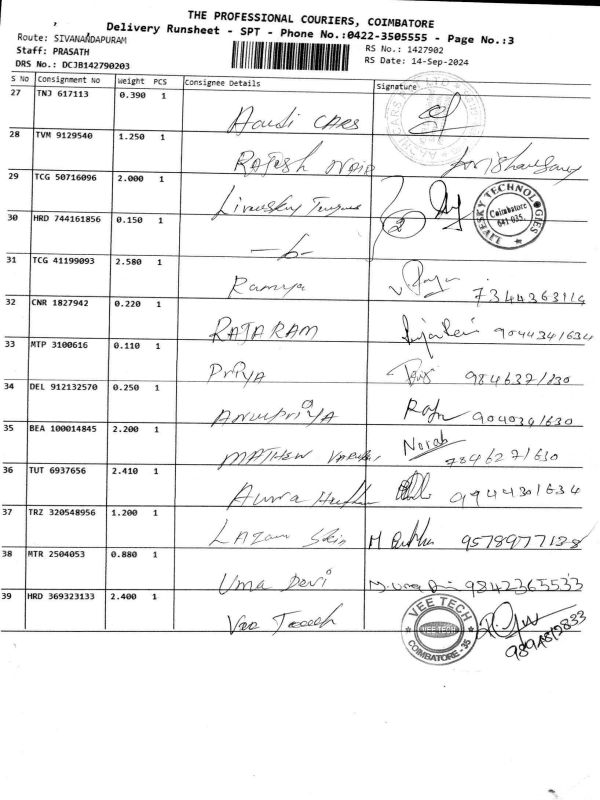 THE PROFESSIONAL COURIERS, COIMBATORE
Delivery Runsheet - SPT - Phone No.:0422-3505555 - Page No.:3
Route: SIVANANDAPURAM
RS No.: 1427902
Staff: PRASATH
RS Date: 14-Sep-2024
DRS No.: DCJB142790203
S No Consignment No Weight PCS Consignee Details Signature
27 TNJ 617113 0.390 1
CARS
28 TVM 9129540 1.250 1
Rajesh Nair
29 TCG 50716096 2.000 1
LIVESKY TECHNOLOGIES
Coimbatore
641 035.
30 HRD 744161856 0.150 1
2
31 TCG 41199093 2.580 1
Ramya
32 CNR 1827942 0.220 1
RAJARAM 9044341634
33 MTP 3100616 0.110 1
PRIYA
34 DEL 912132570 0.250 1
Anupriya
35 BEA 100014845 2.200 1
MATHEW Norah
36 TUT 6937656 2.410 1
9944301634
37 TRZ 320548956 1.200 1
Skin
38 MTR 2504053 0.880 1
Uma Devi 9842365533
39 HRD 369323133 2.400 1
VEE TECH
VEE TECH
COIMBATORE - 35